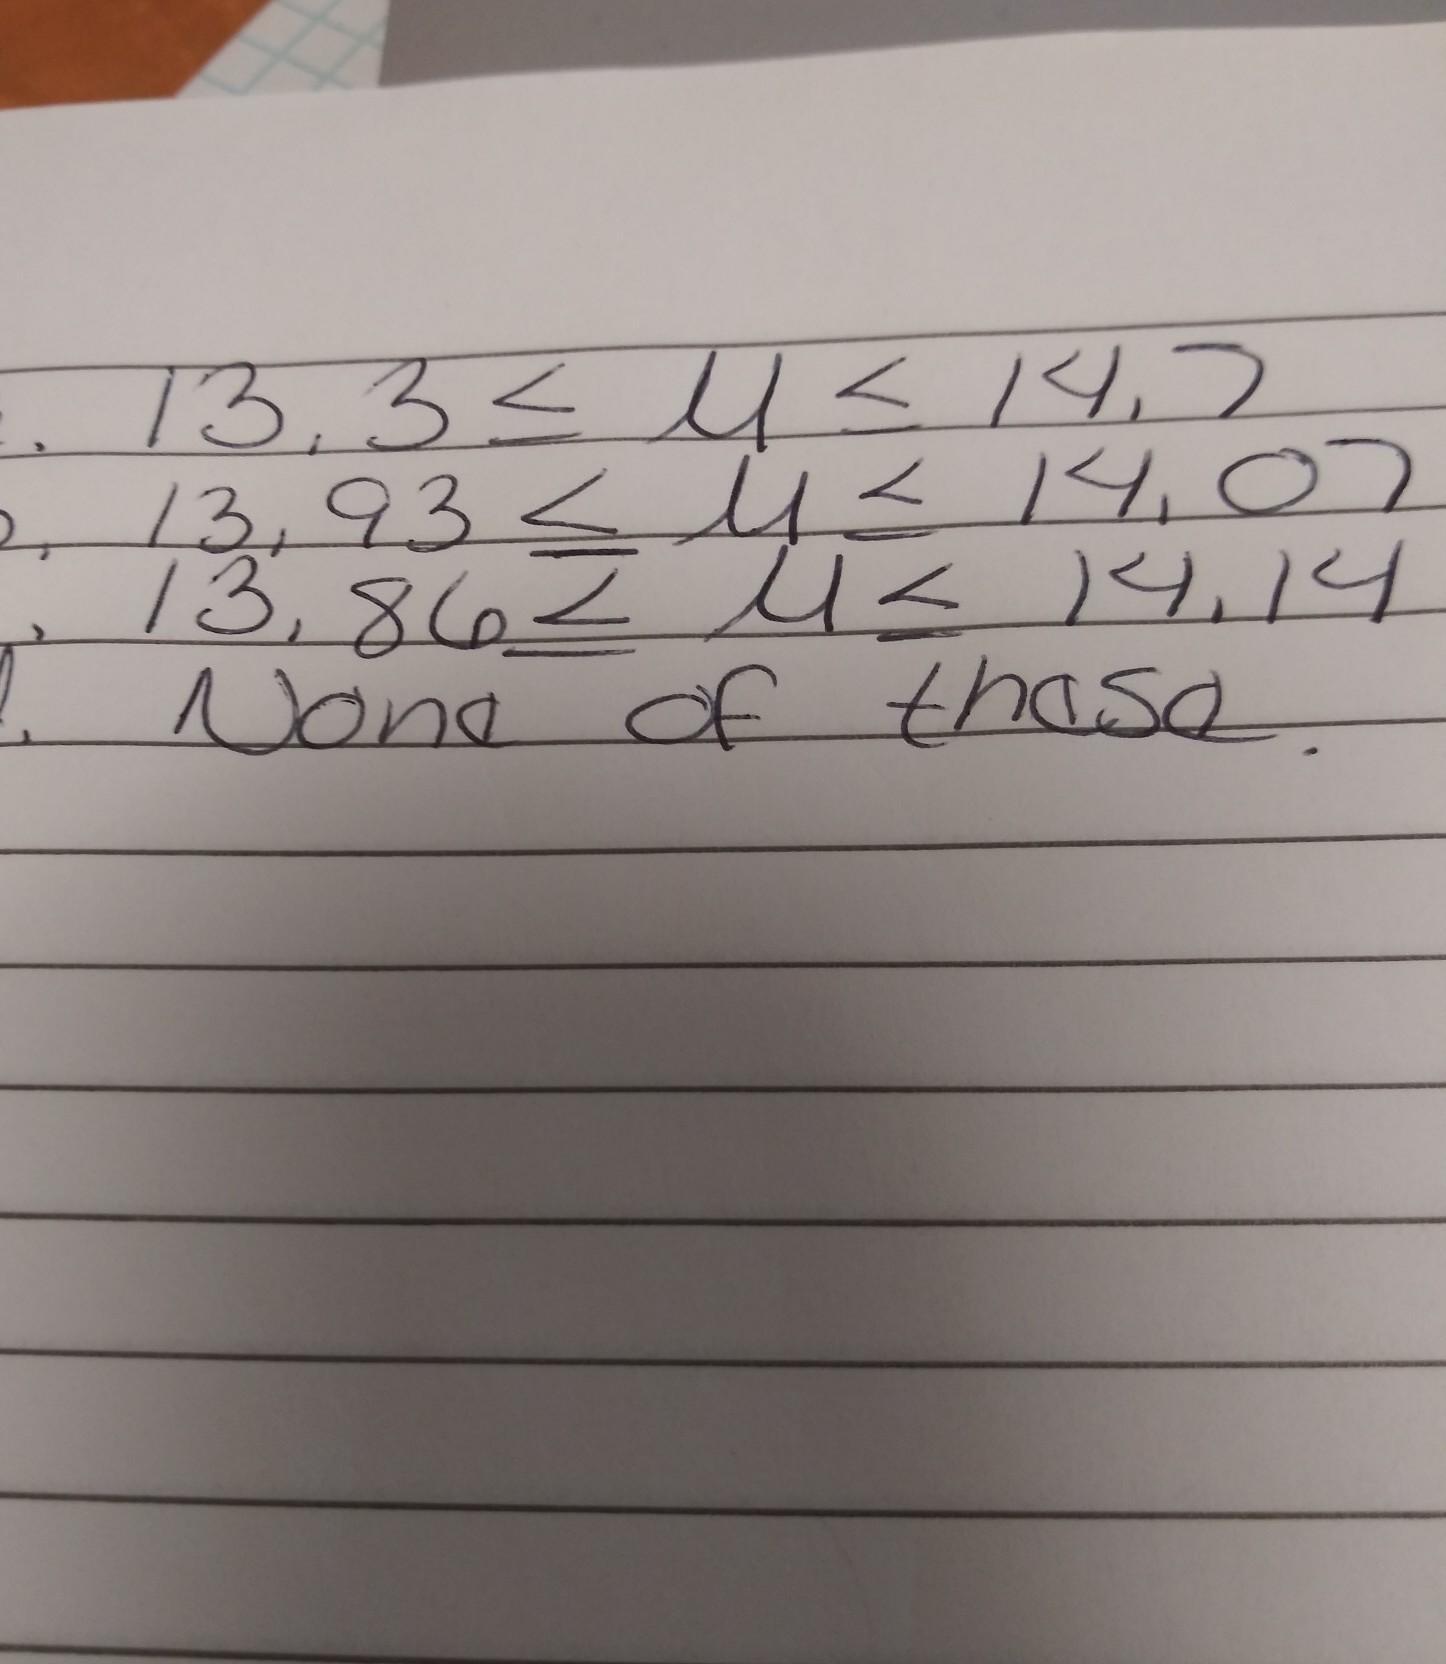 . 13,3 ≤ μ ≤ 14,7
, 13,93 ≤ μ ≤ 14,07
, 13,86 ≤ μ ≤ 14,14
. None of these.